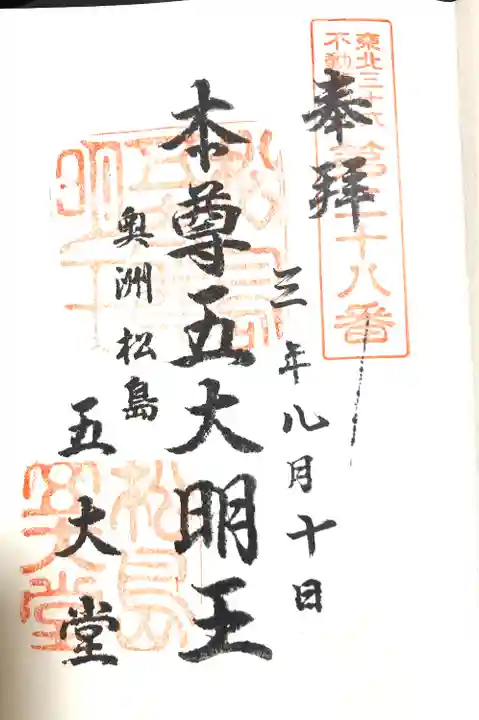 東北三十六
不動
第二十八番
奉拜
三年八月十日
本尊五大明王
奥洲松島
五大堂
松島
五大堂